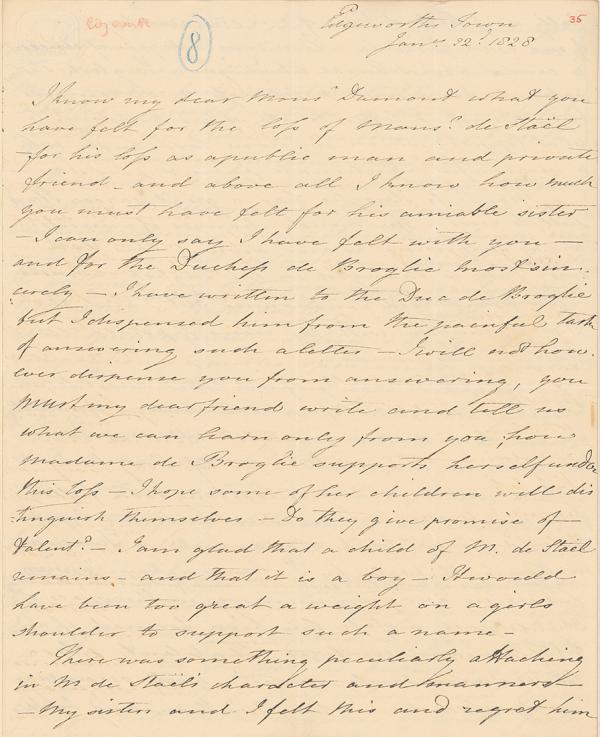 35
8
Edgeworths Town
Jany. 22d. 1828
I know my dear Monsr Dumont what you
have felt for the loss of Monsr. de Staël
for his loss as a public man and private
friend - and above all I know how much
you must have felt for his amiable sister
- I can only say I have felt with you -
and for the Duchess de Broglie most sin-
cerely - I have written to the Duc de Broglie
but I dispensed him from the painful task
of answering such a letter - I will not how-
ever dispense you from answering, you
must my dear friend write and tell us
what we can learn only from you, how
Madame de Broglie supports herself under
this loss - I hope some of her children will dis
tinguish themselves - Do they give promise of -
talent? - I am glad that a child of M. de Staël
remains - and that it is a boy - It would
have been too great a weight on a girls
shoulder to support such a name -
There was something peculiarly attaching
in M de Staël's character and manners -
- My sisters and I felt this and regret him